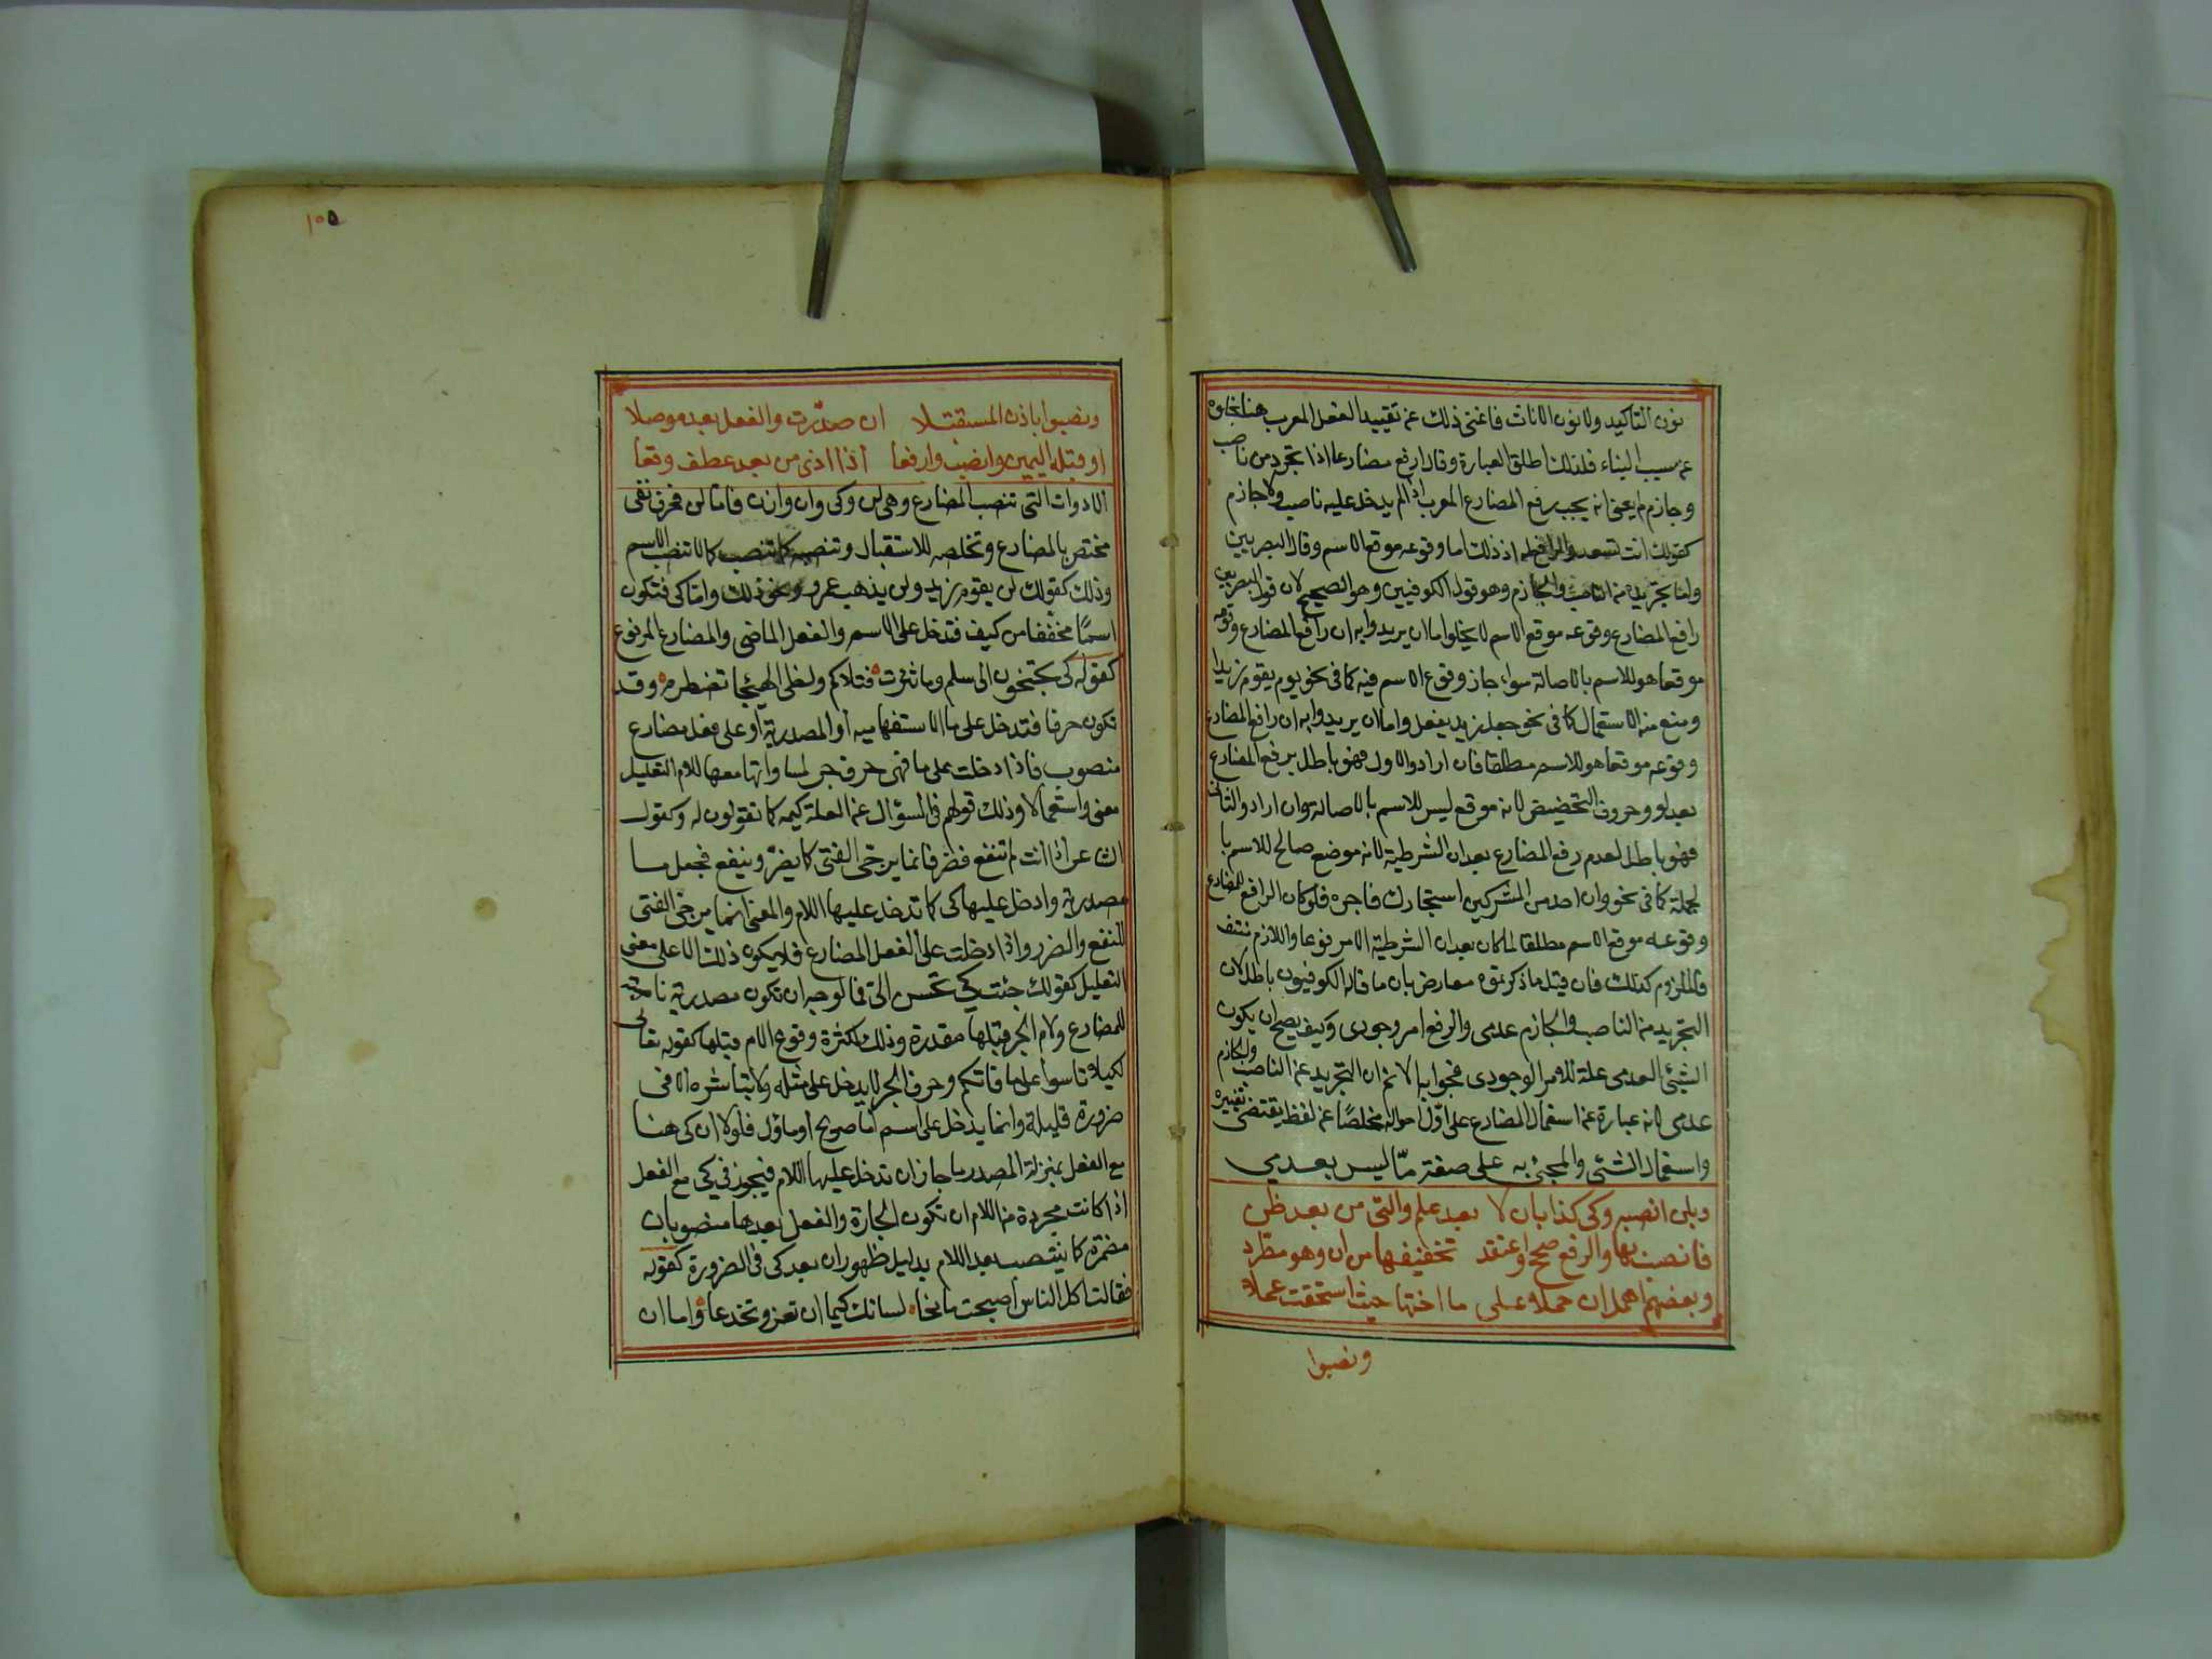 نون التاكيد ولا نون الاناث فاغنى ذلك عن تقييد الفعل المعرب هنا بخلوه
عن سبب البناء فلذلك اطلق العبارة وقال ارفع مضارعا اذا تجرد من ناصب
وجازم يعنى انه يجب رفع المضارع المعرب اذا لم يدخل عليه ناصب ولا جازم
كقولك انت تسعد والرافع له اذ ذاك اما وقوعه موقع الاسم وقال البصريين
واما تجريده من الناصب والجازم وهو قول الكوفيين وهو الصحيح لان قول البصريين
رافع المضارع وقوعه موقع الاسم لا يخلوا اما ان يريدوا به ان رافع المضارع وقوعه
موقعا هو للاسم بالاصالة سواء جاز وقوع الاسم فيه كما فى نحو يوم يقوم زيدا
ومنع منه الاستعمال كما فى نحو جعل زيد يفعل واما ان يريدوا به ان رافع المضارع
وقوعه موقعا هو للاسم مطلقا فان ارادوا الاول فهو باطل برفع المضارع
بعد لو وحروف التحضيض لانه موقع ليس للاسم بالاصالة وان ارادوا الثانى
فهو باطل لعدم رفع المضارع بعد ان الشرطية لانه موضع صالح للاسم با
لجملة كما فى نحو وان احد من المشركين استجارك فاجره فلو كان الرافع للمضارع
وقوعه موقع الاسم مطلقا لما كان بعد ان الشرطية الا مرفوعا واللازم منتف
فالملزوم كذلك فان قيل ما ذكرتموه معارض بان ما قاله الكوفيون باطل لان
التجريد من الناصب والجازم عدمى والرفع امر وجودى وكيف يصح ان يكون
الشيئ العدمى علة للامر الوجودى فجوابه لا نم ان التجريد عن الناصب والجازم
عدمى لانه عبارة عن استعمال المضارع على اول احواله مخلصًا عن لفظ يقتضى تغييره
واستعمال الشئى والمجئ به على صفة مّا ليس بعدمي
وبلن انصبه وكى كذا بان لا بعد علم والتى من بعد ظن
فانصب بها والرفع صحح واعتقد تخفيفها من ان وهو مطرد
وبعضهم اهمل ان حملا على ما اختها حيث استحقت عملا
ونصبوا
١٠٥
ونصبوا باذن المستقبلا ان صدّرت والفعل بعد موصلا
او قبله اليمين وانصب وارفعا اذا اذن من بعد عطف وقعا
الادوات التى تنصب المضارع وهى لن وكى وان واذن فاما لن فحرف نفى
مختص بالمضارع وتخلصه للاستقبال وتنصبه كما تنصب لا الاسم
وذلك كقولك لن يقوم زيد ولن يذهب عمرو ونحو ذلك واما كى فتكون
اسمًا مخففا من كيف فتدخل على الاسم والفعل الماضى والمضارع المرفوع
كقوله كى تجنحون الى سلم وما ثئرت قتلاكم ولظى الهيجا تضطرم وقد
تكون حرفا فتدخل على ما الاستفهاميه او المصدرية او على فعل مضارع
منصوب فاذا دخلت على ما فهى حرف جر لمساواتها معها للام التعليل
معنى واستعمالا وذلك قولهم فى السؤال عن العلة كيمه كما تقولون له وكقول
الشاعر اذا انت لم تنفع فضر فانما يرجى الفتى كيما يضر وينفع فجعل ما
مصدرية وادخل عليها كى كما تدخل عليها اللام والمعنى انما يرجى الفتى
للنفع والضرر واذا دخلت على الفعل المضارع فلا يكون ذلك الا على معنى
التعليل كقولك جئت كى تحسن الىّ فالوجه ان تكون مصدرية ناصبة
للمضارع ولام الجر قبلها مقدرة وذلك لكثرة وقوع الام قبلها كقوله تعالى
لكيلا تاسوا على ما فاتكم وحرف الجر لا يدخل على مثله ولا يباشره الا فى
ضرورة قليلة وانما يدخل على اسم اما صريح او ماؤل فلولا ان كى هنا
مع الفعل بمنزلة المصدر ما جاز ان تدخل عليها اللام فيجوز فى كى مع الفعل
اذا كانت مجردة من اللام ان تكون الجارة والفعل بعدها منصوبا بان
مضمرة كما ينتصب بعد اللام بدليل ظهور ان بعد كى فى الضرورة كقوله
فقالت اكل الناس اصبحت مانحا لسانك كيما ان تغر وتخدعا واما ان